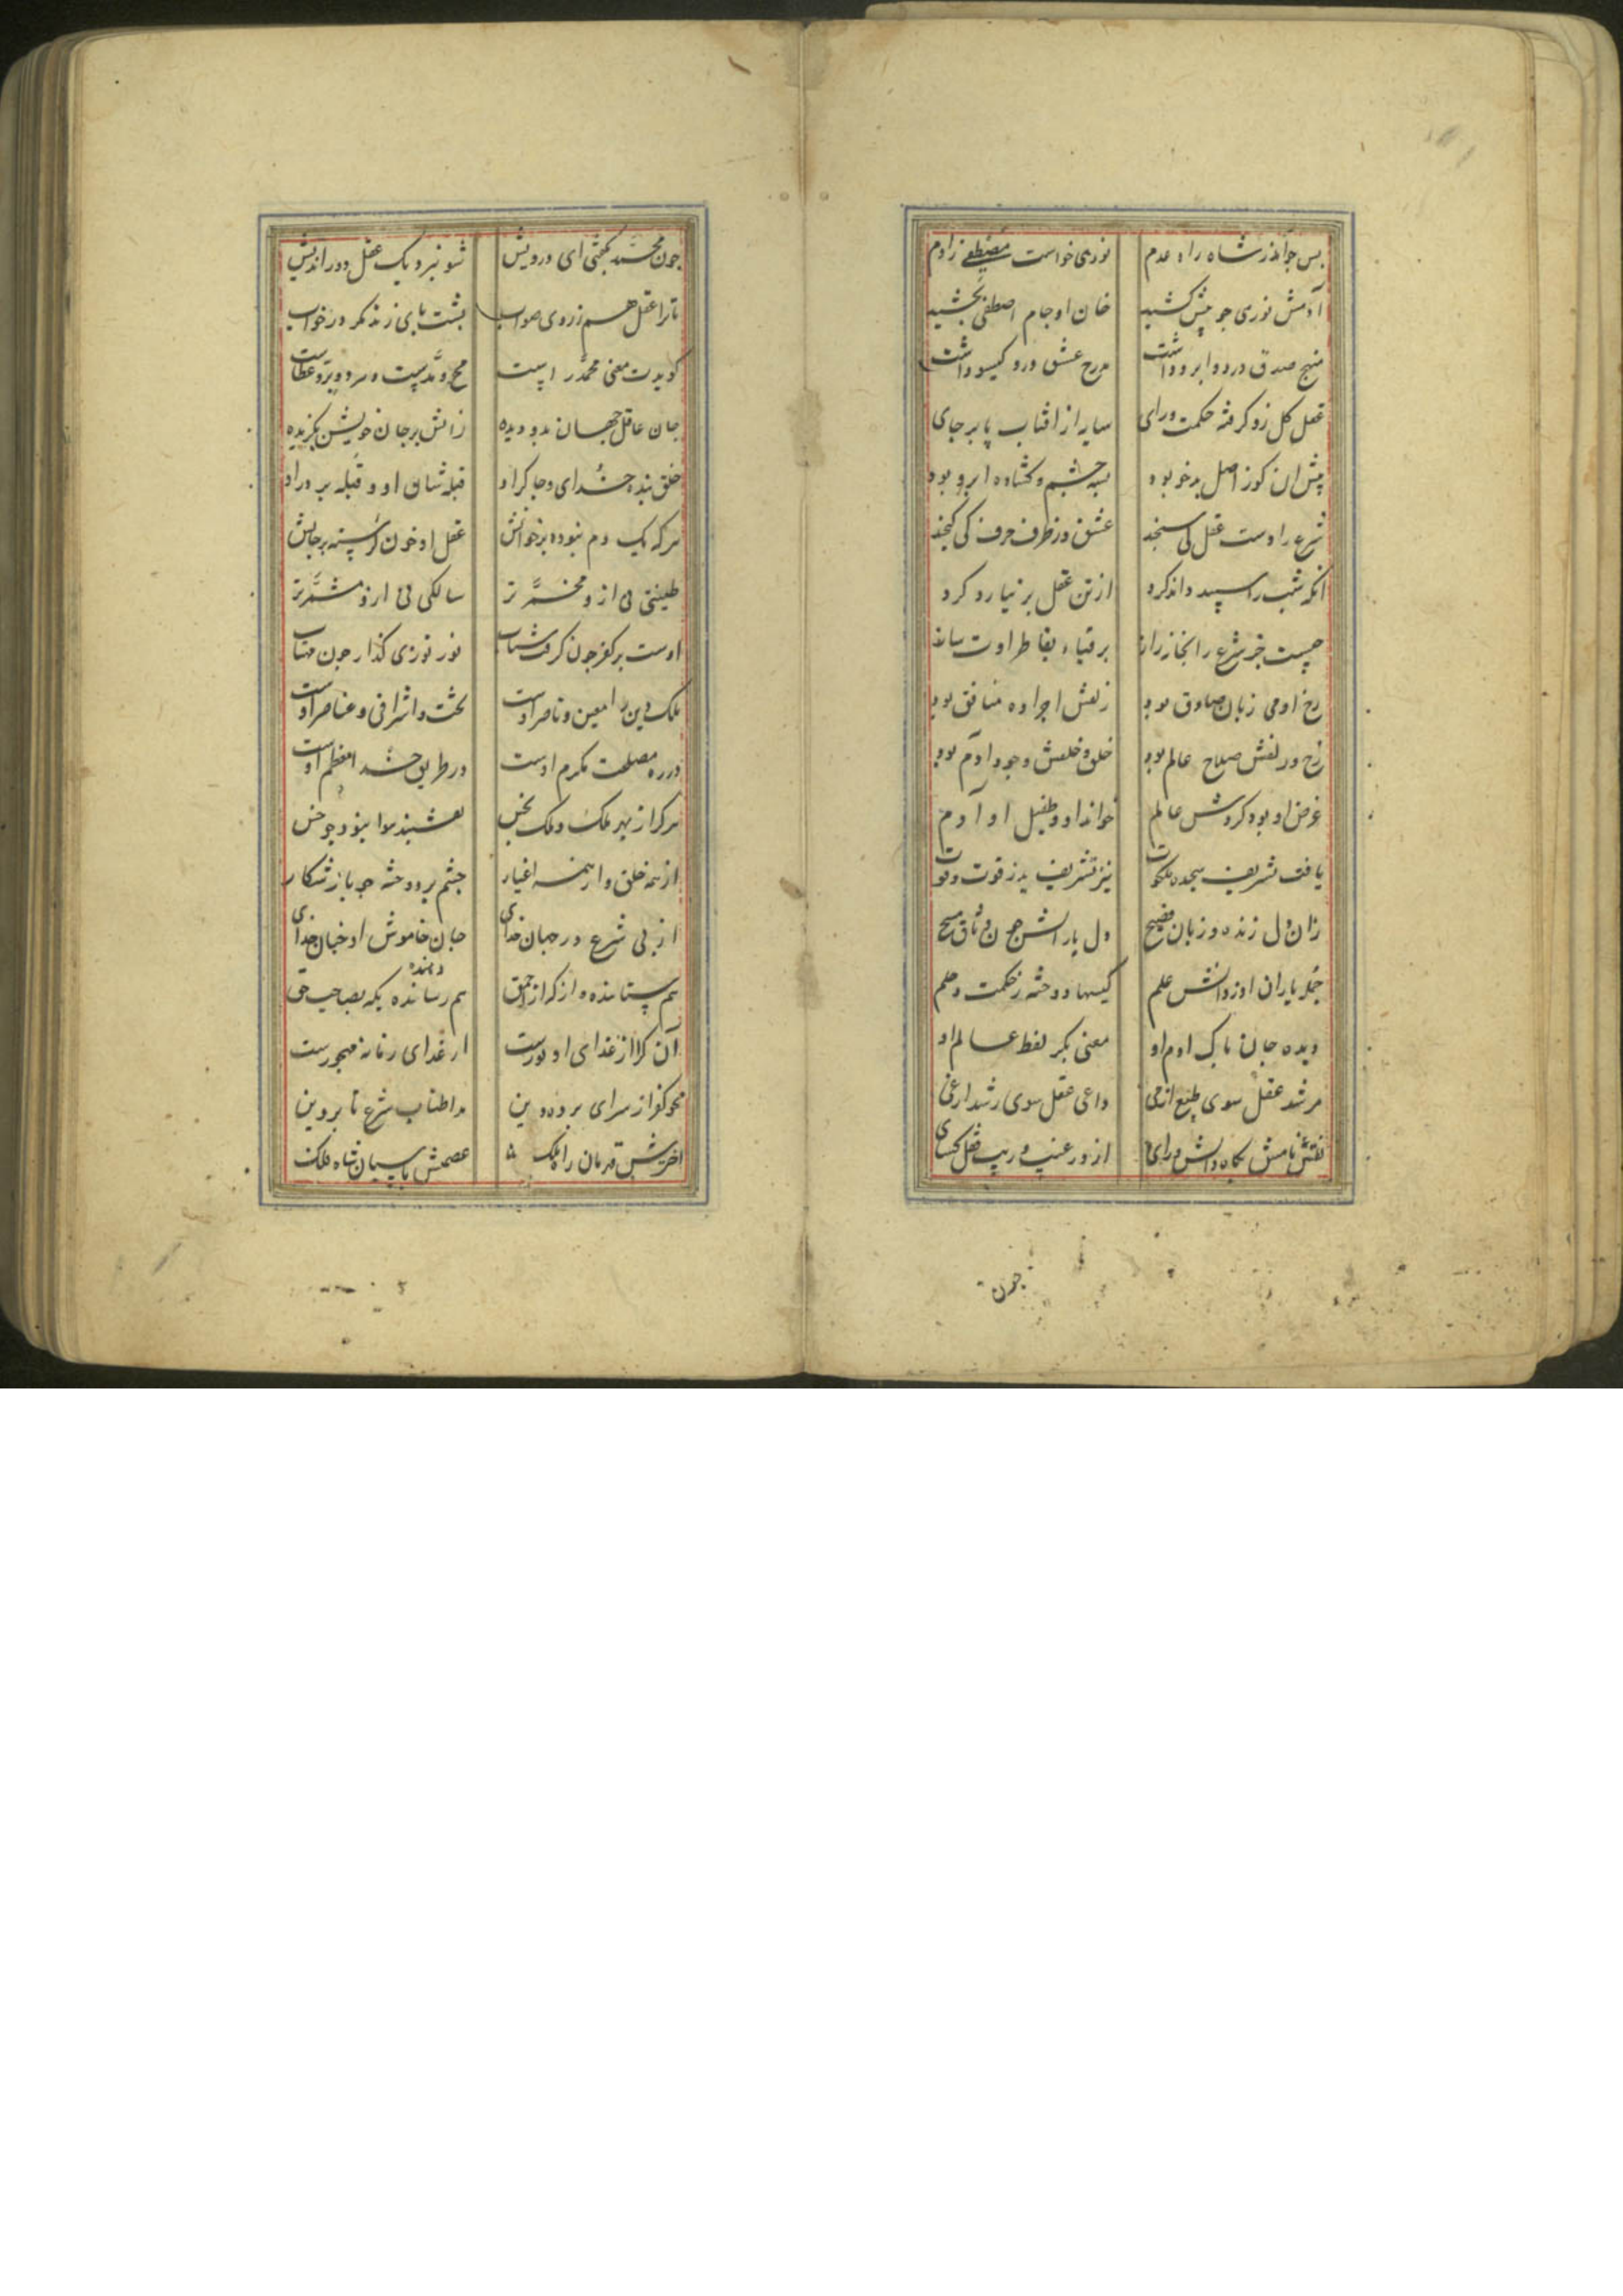 پس چو آمد ز شاه راه عدم نوری خواست مصطفی ز آدم
آدمش نوری چو پیش کشید خان او جام اصطفی بچشید
منهج صدق در دو ابرو داشت مدرج عشق در دو گیسو داشت
عقل کل زو گرفته حکمت و رای سایه از آفتاب پا بر جای
پیش آن کوز اصل بدخو بود بسته چشم و گشاده ابرو بود
شرع را دست عقل کی سنجد عشق در ظرف حرف کی گنجد
انکه شب را سپید داند کرد از تن عقل بر نیارد کرد
چیست جز شرع را بخانه راز بر
رخ او می زبان صادق بود زلفش اجرا ده منافق بود
رخ و زلفش صلاح عالم بود خلق و خلقش وجود آدم بود
غرض او بود کردش عالم خواند او و طفیل او آدم
یافت تشریف سجده ملکوت نیز تشریف بد ز قوت و قوت
زان دل زنده و زبان فصیح دل یارانش چون وثاق مسیح
جمله یاران او ز دانش علم کیسها دوخته ز حکمت و حلم
دیده جان پاک آدم او معنی بکر لفظ عالم او
مرشد عقل سوی طبع از حی داعی عقل سوی رشد از غی
نقش نامش کلاه دانش و رای از در غیب و ریب قفل گشای
چون
چون محمد بگفتی ای درویش شو نبرد یک عقل دوراندیش
تا ترا عقل هم ز روی صواب پشت پای زند مگر در خواب
گویدت معنی محمد راست محو و مدست و سر و بر و عطاست
جان عاقل جهان بدو دیده زانش بر جان خویش بگزیده
خلق بنده خدای و چاکر او قبله شان او و قبله بر در او
هر که یک دم نبوده بر خوانش عقل او خون گرسنه بر جانش
طینتی نی از و مخمر تر سالکی نی ازو مشمر تر
اوست بر کفر چون گرفت شتاب نور نوری گذار چون مهتاب
ملک دین را معین و ناصر اوست تخت و اشراقی و عناصر اوست
در ره مصلحت مکرم اوست در طریق خدا معظم اوست
هر که از بهر ملک و ملک بخس
از همه خلق و از همه اغیار چشم بر دوخته چو باز شکار
از پی شرع در جهان خدای جان خاموش او خیال خدای
هم ستاننده و از که از احمق هم رساننده دهنده بکه بصاحب حق
آن کلا از غذای او دورست از غذای زمانه مهجورست
محو کفر از سرای پرده دین مد اطناب شرع تا پروین
آخریش قهرمان راه ملک عصمتش پاسبان شاه فلک